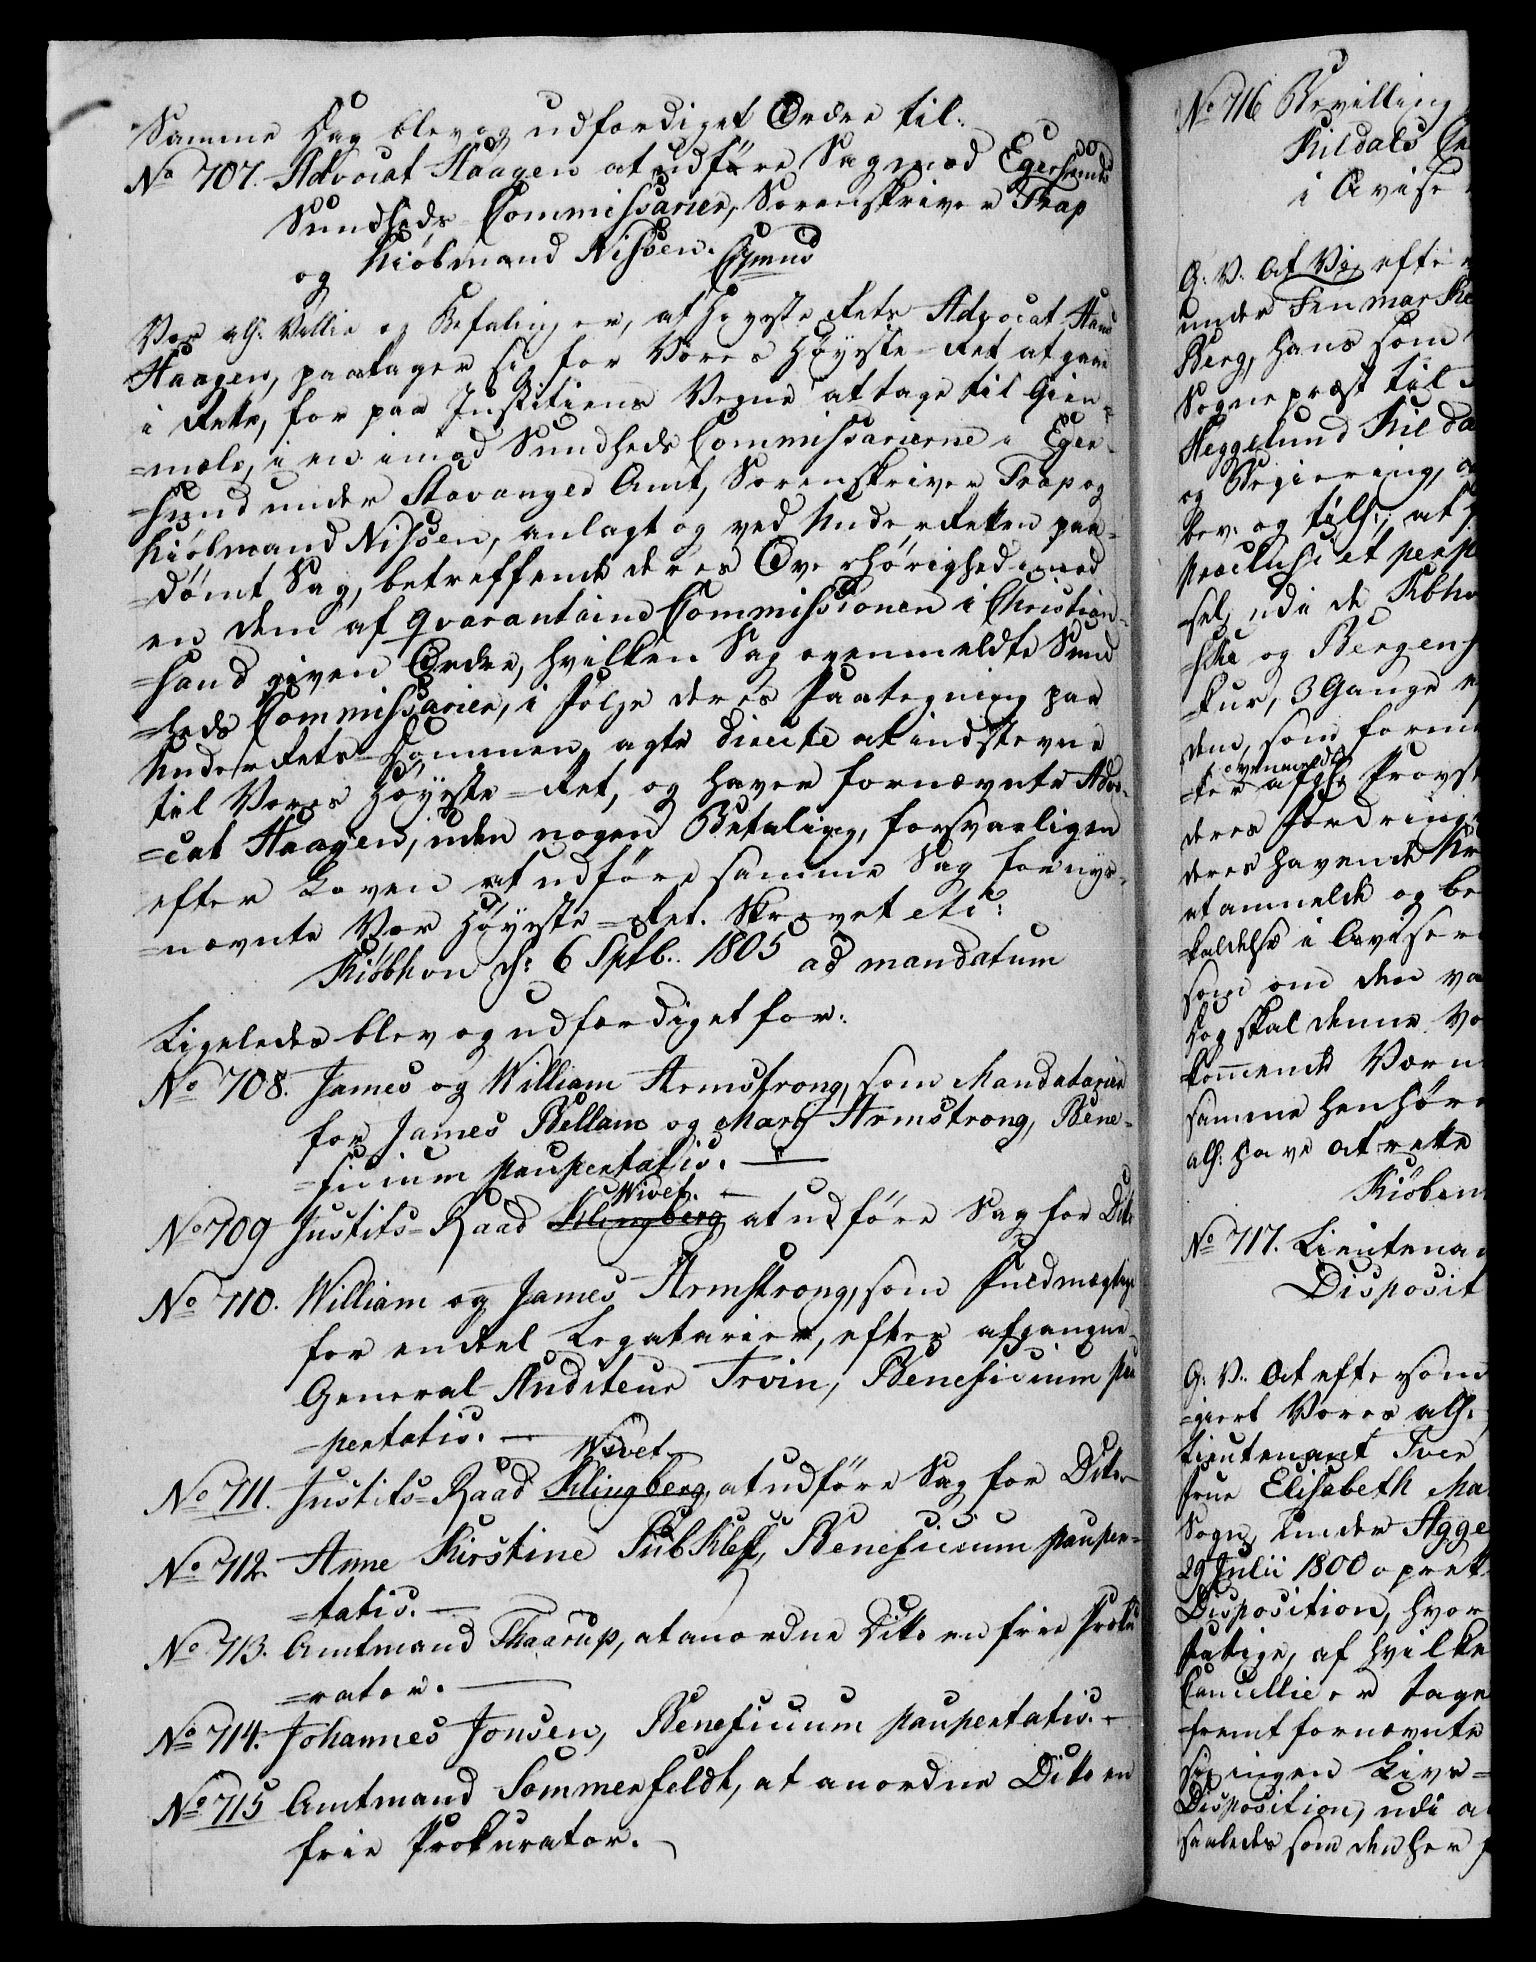 Samme Dag blev og udfærdiget Ordre til:
No 707. Advocat Haagen at udføre Sag mod Egersunds
Sundheds-Commissarier, Sorenskriver Trap
og Kiøbmand Nissen.
Vor alh: Villie og Befaling er, at Høyeste Rets Advocat Hans
Haagen, paatager sig for Vores Høyeste-Ret at gaae
i Rette, for paa Justitiens Vegne at tage til Gien-
=mæle, i en imod Sundheds Commissarierne i Eger-
=sund under Stavanger Amt, Sorenskriver Trap og
Kiøbmand Nissen, anlagt og ved Under Retten paa-
=dømt Sag, betreffende deres Overhørighed imod
en dem af Qvarantaine Commissionen i Christian-
=sand given Ordre, hvilken Sag ovenmeldte Sund
=heds Commissarier, i Følge deres Paategning paa
Under Rets-Dommen, agte directe at indstevne
til Vores Høyeste-Ret, og haver fornævnte Advo-
=cat Haagen, uden nogen Betaling, forsvarligen
efter Loven at udføre samme Sag for nys-
=nævnte Vor Høyeste-Ret. Skrevet etc:
Kiøbhvn d: 6 Sptb. 1805 ad mandatum
Ligeledes blev og udfærdiget for:
No 708. James og William Armstrong, som Mandatarier
for James Bellam og Mary Armstrong, Bene-
=ficium paupertatis. —
Wivet.
No 709 Justits-Raad Klingberg at udføre Sag for Dito
No 710. William og James Armstrong, som Fuldmægtige
for endeel Legatarier, efter afgangne
General-Auditeur Irvin, Beneficium pau
=pertatis. —
Wivet
No 711. Justits-Raad Klingberg, at udføre Sag for Dito
No 712. Anne Kirstine Beneficium pauper-
=tatis. —
No 713. Amtmand Thaarup, at anordne Dito en frie Proku
=rator. —
No 714. Johannes Jonsen, Beneficium paupertatis. —
No 715 Amtmand Sommerfeldt, at anordne Dito en
frie Prokurator. —
No 716 Bevilling
Kildals
i Avise
G: V: At Vi efter
under Finmarke
Berg, hans som
Sognepræst til
Heggelund Kilda
og Regiering,
bev: og tilst: at
proclusi et perp
=sel, udi de Kbhv
=ske og Bergens
=kur, 3 Gange
dem, som forme
ovenmeldte
=ter afgl: Provst
deres Fordring
deres havende
at anmelde og be
=kaldelse i Aviser
som om den va
Dog skal denne Vo
kommende Værn
samme henhøre
alh: have at rette
Kiøben
No 717. Lieutena
Disposit
G: V: At eftersom
=giert Vores alh:
Lieutenant Iver
Frue Elisabeth Ma
Sogn, under Agge
29 Julii 1800 oprett
Disposition, hvor
, af hvilke
Cancellie er tage
fremt fornævnte
sig ingen Livs-
Disposition, udi a
saaledes som den her